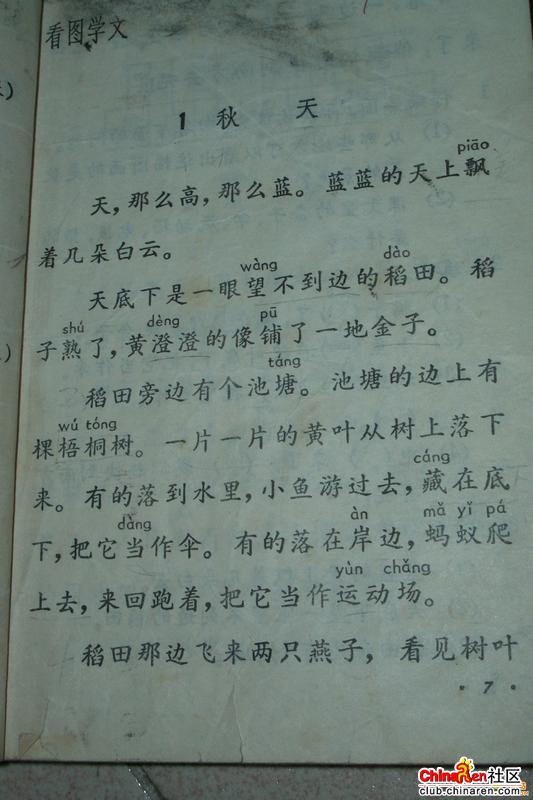 看图学文
1 秋 天
piāo
天，那么高，那么蓝。蓝蓝的天上飘
着几朵白云。
wàng dào
天底下是一眼望不到边的稻田。稻
shú dèng pū
子熟了，黄澄澄的像铺了一地金子。
táng
稻田旁边有个池塘。池塘的边上有
wú tóng
棵梧桐树。一片一片的黄叶从树上落下
cáng
来。有的落到水里，小鱼游过去，藏在底
dàng àn mǎ yǐ pá
下，把它当作伞。有的落在岸边，蚂蚁爬
yùn chǎng
上去，来回跑着，把它当作运动场。
稻田那边飞来两只燕子，看见树叶
·7·
ChinaRen社区
club.chinaren.com